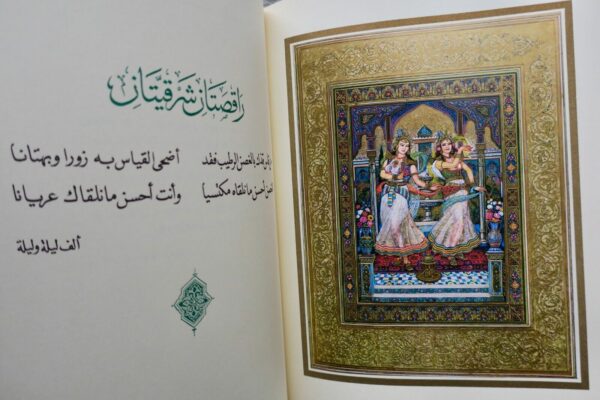 راقصتان شرقيتان
بالغصن الرطيب فقد أضحى القياس به زورا وبهتانا
أحسن ما نلقاه مكتسيا وأنت أحسن ما نلقاك عريانا
ألف ليلة وليلة